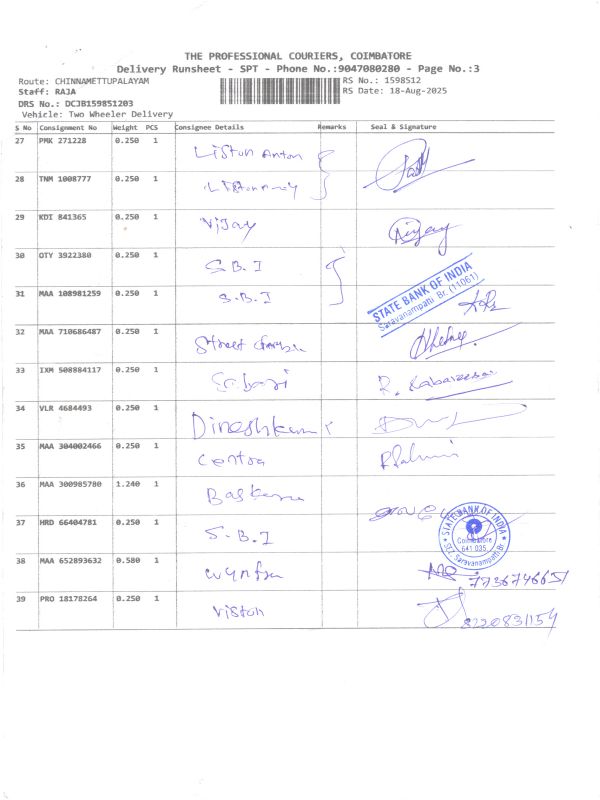 THE PROFESSIONAL COURIERS, COIMBATORE
Delivery Runsheet - SPT - Phone No.:9047080280 - Page No.:3
Route: CHINNAMETTUPALAYAM RS No.: 1598512
Staff: RAJA RS Date: 18-Aug-2025
DRS No.: DCJB159851203
Vehicle: Two Wheeler Delivery
S No Consignment No Weight PCS Consignee Details Remarks Seal & Signature
27 PMK 271228 0.250 1 Liston Anton
28 TNM 1008777 0.250 1
29 KDI 841365 0.250 1 Vijay Vijay
30 OTY 3922380 0.250 1 S.B.I
STATE BANK OF INDIA
Saravanampatti Br. (11061)
31 MAA 108981259 0.250 1 S.B.I
32 MAA 710686487 0.250 1 Street
33 IXM 508884117 0.250 1 Sabari R.
34 VLR 4684493 0.250 1 Dineshkumar
35 MAA 304002466 0.250 1 Centra
36 MAA 300985780 1.240 1
37 HRD 66404781 0.250 1 S.B.I
STATE BANK OF INDIA
Coimbatore
641 035
Saravanampatti Br.
38 MAA 652893632 0.580 1
39 PRO 18178264 0.250 1 Viston
8220831154